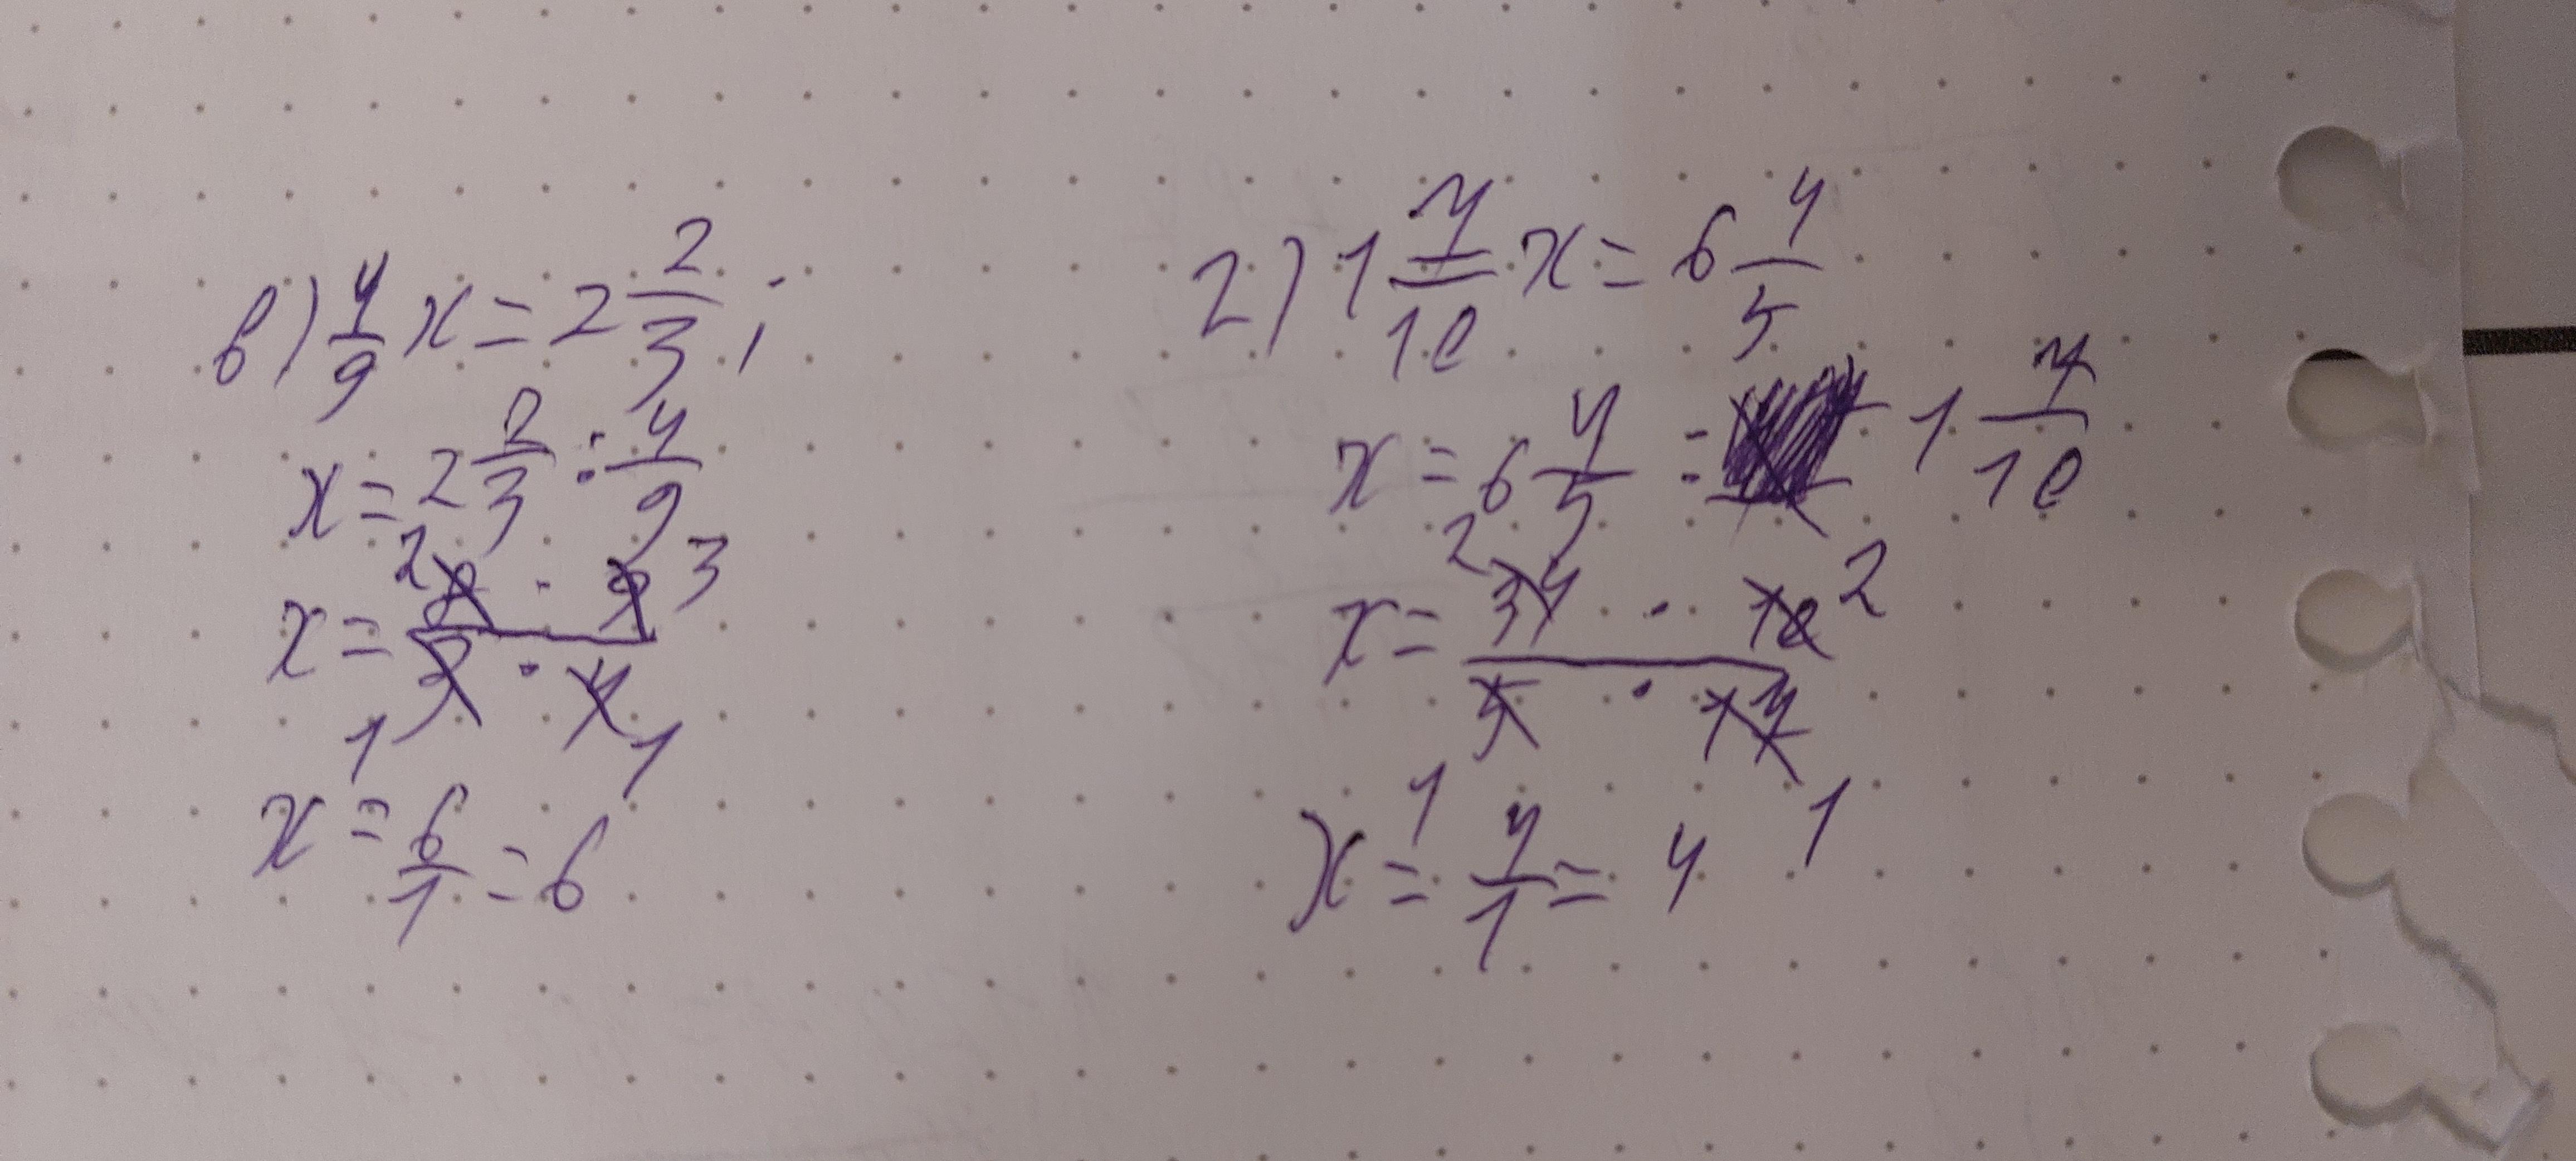 в) 4/9 x = 2 2/3;
x = 2 2/3 : 4/9
x = 2 8 · 9 3 / 1 3 · 4 1
x = 6/1 = 6
г) 1 7/10 x = 6 4/5
x = 6 4/5 : 1 7/10
x = 2 34 · 10 2 / 1 5 · 17 1
x = 4/1 = 4